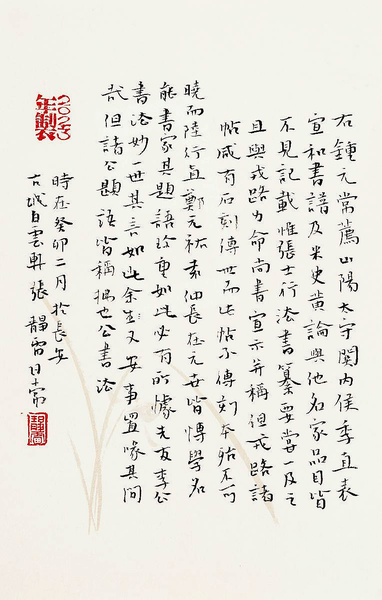 右鍾元常薦山陽太守關內侯季直表
宣和書譜及米史黃論與他名家品目皆
不見記載惟張士行法書纂要嘗一及之
且與戎路力命尚書宣示并稱但戎路諸
帖咸有石刻傳世而此帖不傳刻本殆不可
曉而陸行直鄭元祐袁仲長在元世皆博學名
能書家其題語珍重如此必有所據先友李公
書法妙一世其言如此余生又安事置喙其間
哉但諸公題語皆稱楊也公書法
時在癸卯二月於長安
古城白雲軒張靜雷日常
2023年製